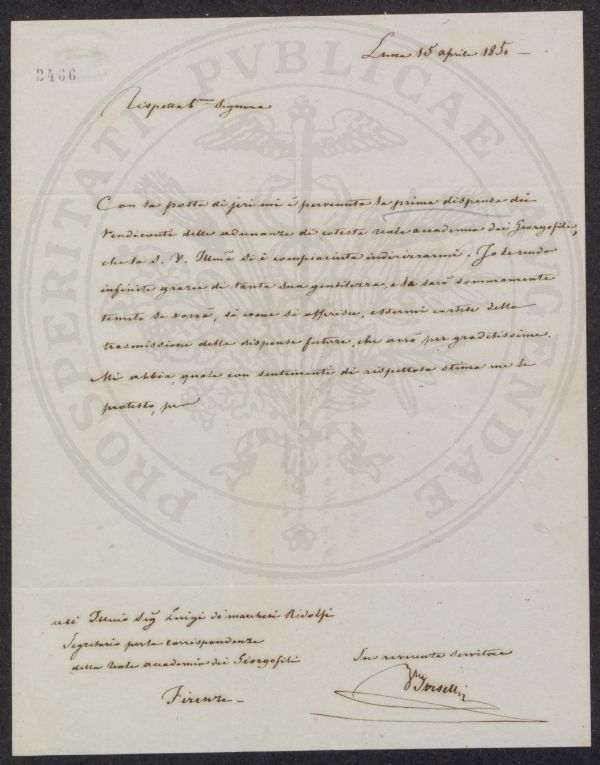 Lucca 15 aprile 185.
2466
PROSPERITATI PVBLICAE AVGENDAE
Rispettab.mo Signore
Con la posta di jeri mi è pervenuta la prima dispensa dei
rendiconti delle adunanze di cotesta reale accademia dei Georgofili,
che la S. V. Illma si è compiaciuta indirizzarmi. Io le rendo
infinite grazie di tanta sua gentilezza, e le sarò sommamente
tenuto se vorrà, si come si offerisce, essermi cortese della
trasmissione delle dispense future, che avrò per graditissime.
Mi abbia, quale con sentimenti di rispettosa stima me le
protesto, per
Illmo Sig Luigi de' marchesi Ridolfi
Segretario per le corrispondenze
della reale accademia dei Georgofili
Firenze
Suo reverente Servitore